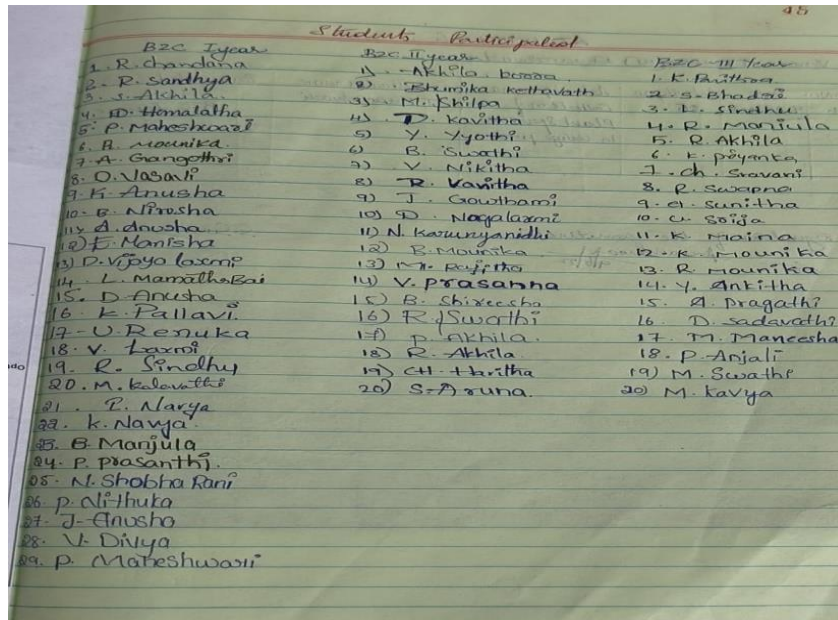 45
Students Participated
BZC I year
1. R. Chandana
2. R. Sandhya
3. S. Akhila
4. D. Hemalatha
5. P. Maheshwari
6. R. Mounika
7. A. Gangothri
8. O. Vasavi
9. K. Anusha
10. B. Nirosha
11) A. Anusha
12) E. Manisha
13) D. Vijaya laxmi
14. L. Mamatha Bai
15. D. Anusha
16. K. Pallavi
17. U. Renuka
18. V. Laxmi
19. R. Sindhu
20. M. Kalavathi
21. Navya
22. K. Navya
23. B. Manjula
24. P. Prasanthi
25. N. Shobha Rani
26. P. Nithuka
27. J. Anusha
28. V. Divya
29. P. Maheshwari
BZC II year
1) Akhila
2) Bhumika kethavath
3) M. Shilpa
4) D. Kavitha
5) Y. Jyothi
6) B. Swathi
7) V. Nikitha
8) R. Kavitha
9) J. Gowthami
10) D. Nagalaxmi
11) N. Karunyanidhi
12) B. Mounika
13) M. Rajitha
14) V. Prasanna
15) B. Shireesha
16) R. Swathi
17) P. Akhila
18) R. Akhila
19) CH. Haritha
20) S. Aruna
BZC III Year
1. K.
2. S. Bhadri
3. Sindhu
4. R. Manjula
5. R. Akhila
6. K. Priyanka
7. Ch. Sravani
8. R. Swapna
9. Sunitha
10. G. Srija
11. K. Maina
12. K. Mounika
13. R. Mounika
14. Y. Ankitha
15. A. Pragathi
16. D. Sadavathi
17. M. Maneesha
18. P. Anjali
19) M. Swathi
20) M. Kavya